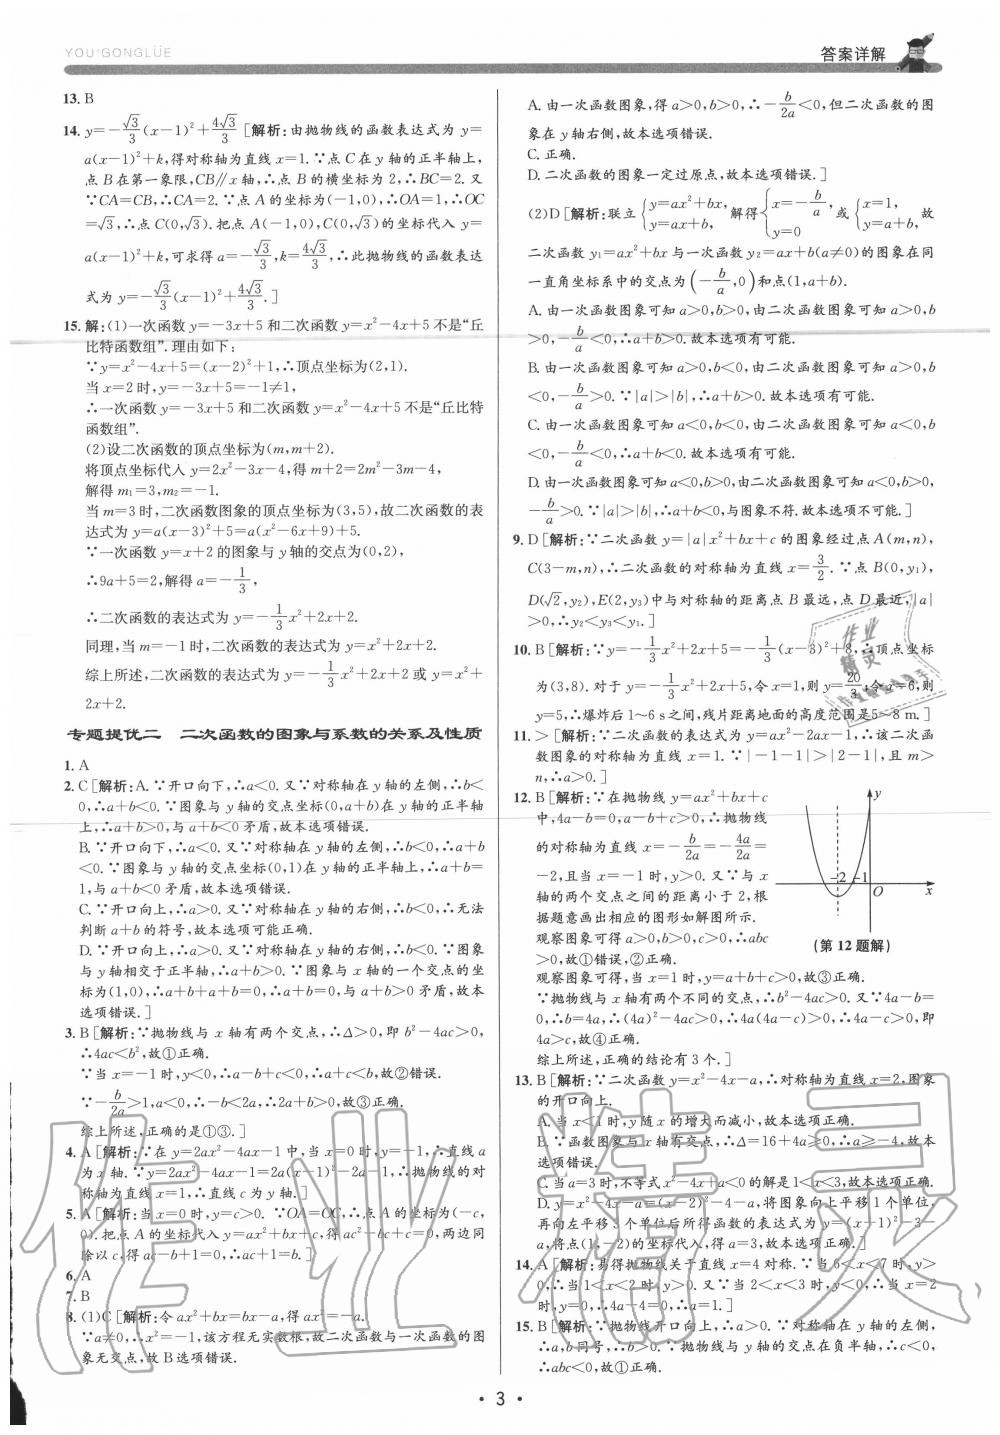 YOU'GONGLÜE
答案详解
13. B
14. y=-√3/3(x-1)²+4√3/3 [解析:由抛物线的函数表达式为 y=
a(x-1)²+k,得对称轴为直线 x=1.∵点 C 在 y 轴的正半轴上,
点 B 在第一象限,CB∥x 轴,∴点 B 的横坐标为 2,∴BC=2.又
∵CA=CB,∴CA=2.∵点 A 的坐标为(-1,0),∴OA=1,∴OC
=√3,∴点 C(0,√3).把点 A(-1,0),C(0,√3)的坐标代入 y=
a(x-1)²+k,可求得 a=-√3/3,k=4√3/3,∴此抛物线的函数表达
式为 y=-√3/3(x-1)²+4√3/3.]
15. 解:(1)一次函数 y=-3x+5 和二次函数 y=x²-4x+5 不是“丘
比特函数组”.理由如下:
∵y=x²-4x+5=(x-2)²+1,∴顶点坐标为(2,1).
当 x=2 时,y=-3x+5=-1≠1,
∴一次函数 y=-3x+5 和二次函数 y=x²-4x+5 不是“丘比特
函数组”.
(2)设二次函数的顶点坐标为(m,m+2).
将顶点坐标代入 y=2x²-3x-4,得 m+2=2m²-3m-4,
解得 m₁=3,m₂=-1.
当 m=3 时,二次函数图象的顶点坐标为(3,5),故二次函数的表
达式为 y=a(x-3)²+5=a(x²-6x+9)+5.
∵一次函数 y=x+2 的图象与 y 轴的交点为(0,2),
∴9a+5=2,解得 a=-1/3,
∴二次函数的表达式为 y=-1/3x²+2x+2.
同理,当 m=-1 时,二次函数的表达式为 y=x²+2x+2.
综上所述,二次函数的表达式为 y=-1/3x²+2x+2 或 y=x²+
2x+2.
专题提优二 二次函数的图象与系数的关系及性质
1. A
2. C [解析:A.∵开口向下,∴a<0.又∵对称轴在 y 轴的左侧,∴b<
0,∴a+b<0.∵图象与 y 轴的交点坐标(0,a+b)在 y 轴的正半轴
上,∴a+b>0,与 a+b<0 矛盾,故本选项错误.
B.∵开口向下,∴a<0.又∵对称轴在 y 轴的左侧,∴b<0,∴a+b
<0.∵图象与 y 轴的交点坐标(0,1)在 y 轴的正半轴上,∴a+b=
1,与 a+b<0 矛盾,故本选项错误.
C.∵开口向上,∴a>0.又∵对称轴在 y 轴的右侧,∴b<0,∴无法
判断 a+b 的符号,故本选项可能正确.
D.∵开口向上,∴a>0.又∵对称轴在 y 轴的右侧,∴b<0.∵图象
与 y 轴相交于正半轴,∴a+b>0.∵图象与 x 轴的一个交点的坐
标为(1,0),∴a+b+a+b=0,∴a+b=0,与 a+b>0 矛盾,故本
选项错误.]
3. B [解析:∵抛物线与 x 轴有两个交点,∴Δ>0,即 b²-4ac>0,
∴4ac<b²,故①正确.
∵当 x=-1 时,y<0,∴a-b+c<0,∴a+c<b,故②错误.
∵-b/2a>1,a<0,∴-b<2a,∴2a+b>0,故③正确.
综上所述,正确的是①③.]
4. A [解析:∵在 y=2ax²-4ax-1 中,当 x=0 时,y=-1,∴直线 a
为 x 轴.∵y=2ax²-4ax-1=2a(x-1)²-2a-1,∴抛物线的对
称轴为直线 x=1,∴直线 c 为 y 轴.]
5. A [解析:当 x=0 时,y=c>0.∵OA=OC,∴点 A 的坐标为(-c,
0).把点 A 的坐标代入 y=ax²+bx+c,得 ac²-bc+c=0,两边同
除以 c,得 ac-b+1=0,∴ac+1=b.]
6. A
7. B
8. (1)C [解析:令 ax²+bx=bx-a,得 ax²=-a.
∵a≠0,∴x²=-1,该方程无实数根,故二次函数与一次函数的图
象无交点,故 B 选项错误.
A.由一次函数图象,得 a>0,b>0,∴-b/2a<0,但二次函数的图
象在 y 轴右侧,故本选项错误.
C.正确.
D.二次函数的图象一定过原点,故本选项错误.]
(2)D [解析:联立{y=ax²+bx, y=ax+b, 解得{x=-b/a, y=0 或{x=1, y=a+b, 故
二次函数 y₁=ax²+bx 与一次函数 y₂=ax+b(a≠0)的图象在同
一直角坐标系中的交点为(-b/a,0)和点(1,a+b).
A.由一次函数图象可知 a>0,b>0,由二次函数图象可知 a>0,b
>0,-b/a<0,∴a+b>0.故本选项有可能.
B.由一次函数图象可知 a>0,b<0,由二次函数图象可知 a>0,b
<0,-b/a>0.∵|a|>|b|,∴a+b>0.故本选项有可能.
C.由一次函数图象可知 a<0,b<0,由二次函数图象可知 a<0,b
<0,-b/a<0,∴a+b<0.故本选项有可能.
D.由一次函数图象可知 a<0,b>0,由二次函数图象可知 a<0,b>0,
-b/a>0.∵|a|>|b|,∴a+b<0,与图象不符.故本选项不可能.]
9. D [解析:∵二次函数 y=|a|x²+bx+c 的图象经过点 A(m,n),
C(3-m,n),∴二次函数的对称轴为直线 x=3/2.∵点 B(0,y₁),
D(√2,y₂),E(2,y₃)中与对称轴的距离点 B 最远,点 D 最近,|a|
>0,∴y₂<y₃<y₁.]
10. B [解析:∵y=-1/3x²+2x+5=-1/3(x-3)²+8,∴顶点坐标
为(3,8).对于 y=-1/3x²+2x+5,令 x=1,则 y=20/3;令 x=6,则
y=5,∴爆炸后 1~6 s 之间,残片距离地面的高度范围是5~8 m.]
11. > [解析:∵二次函数的表达式为 y=ax²-2ax-1,∴该二次函
数图象的对称轴为直线 x=1.∵|-1-1|>|2-1|,且 m>
n,∴a>0.]
12. B [解析:∵在抛物线 y=ax²+bx+c
中,4a-b=0,a-b+c>0,∴抛物线
的对称轴为直线 x=-b/2a=-4a/2a=
-2,且当 x=-1 时,y>0.又∵与 x
轴的两个交点之间的距离小于 2,根
据题意画出相应的图形如解图所示.
观察图象可得 a>0,b>0,c>0,∴abc
>0,故①错误,②正确.
y
-2 -1
O
x
(第 12 题解)
观察图象可得,当 x=1 时,y=a+b+c>0,故③正确.
∵抛物线与 x 轴有两个不同的交点,∴b²-4ac>0.又∵4a-b=
0,∴b=4a,∴(4a)²-4ac>0,∴4a(4a-c)>0,∴4a-c>0,即
4a>c,故④正确.
综上所述,正确的结论有 3 个.]
13. B [解析:∵二次函数 y=x²-4x-a,∴对称轴为直线 x=2,图象
的开口向上.
A.当 x<1 时,y 随 x 的增大而减小,故本选项正确.
B.∵函数图象与 x 轴有交点,∴Δ=16+4a≥0,∴a≥-4,故本
选项错误.
C.当 a=3 时,不等式 x²-4x+a<0 的解是 1<x<3,故本选项正确.
D.y=x²-4x-a=(x-2)²-4-a,将图象向上平移 1 个单位,
再向左平移 3 个单位后所得函数的表达式为 y=(x+1)²-3-
a,将点(1,-2)的坐标代入,得 a=3,故本选项正确.]
14. A [解析:易得抛物线关于直线 x=4 对称.∵当 6<x<7 时,y>
0,∴当 1<x<2 时,y>0.又∵当 2<x<3 时,y<0,∴当 x=2
时,y=0,∴4a-4=0,∴a=1.]
15. B [解析:∵抛物线开口向上,∴a>0.∵对称轴在 y 轴的左侧,
∴a,b 同号,∴b>0.∵抛物线与 y 轴的交点在负半轴,∴c<0,
∴abc<0,故①正确.
• 3 •
作业精灵
作业精灵